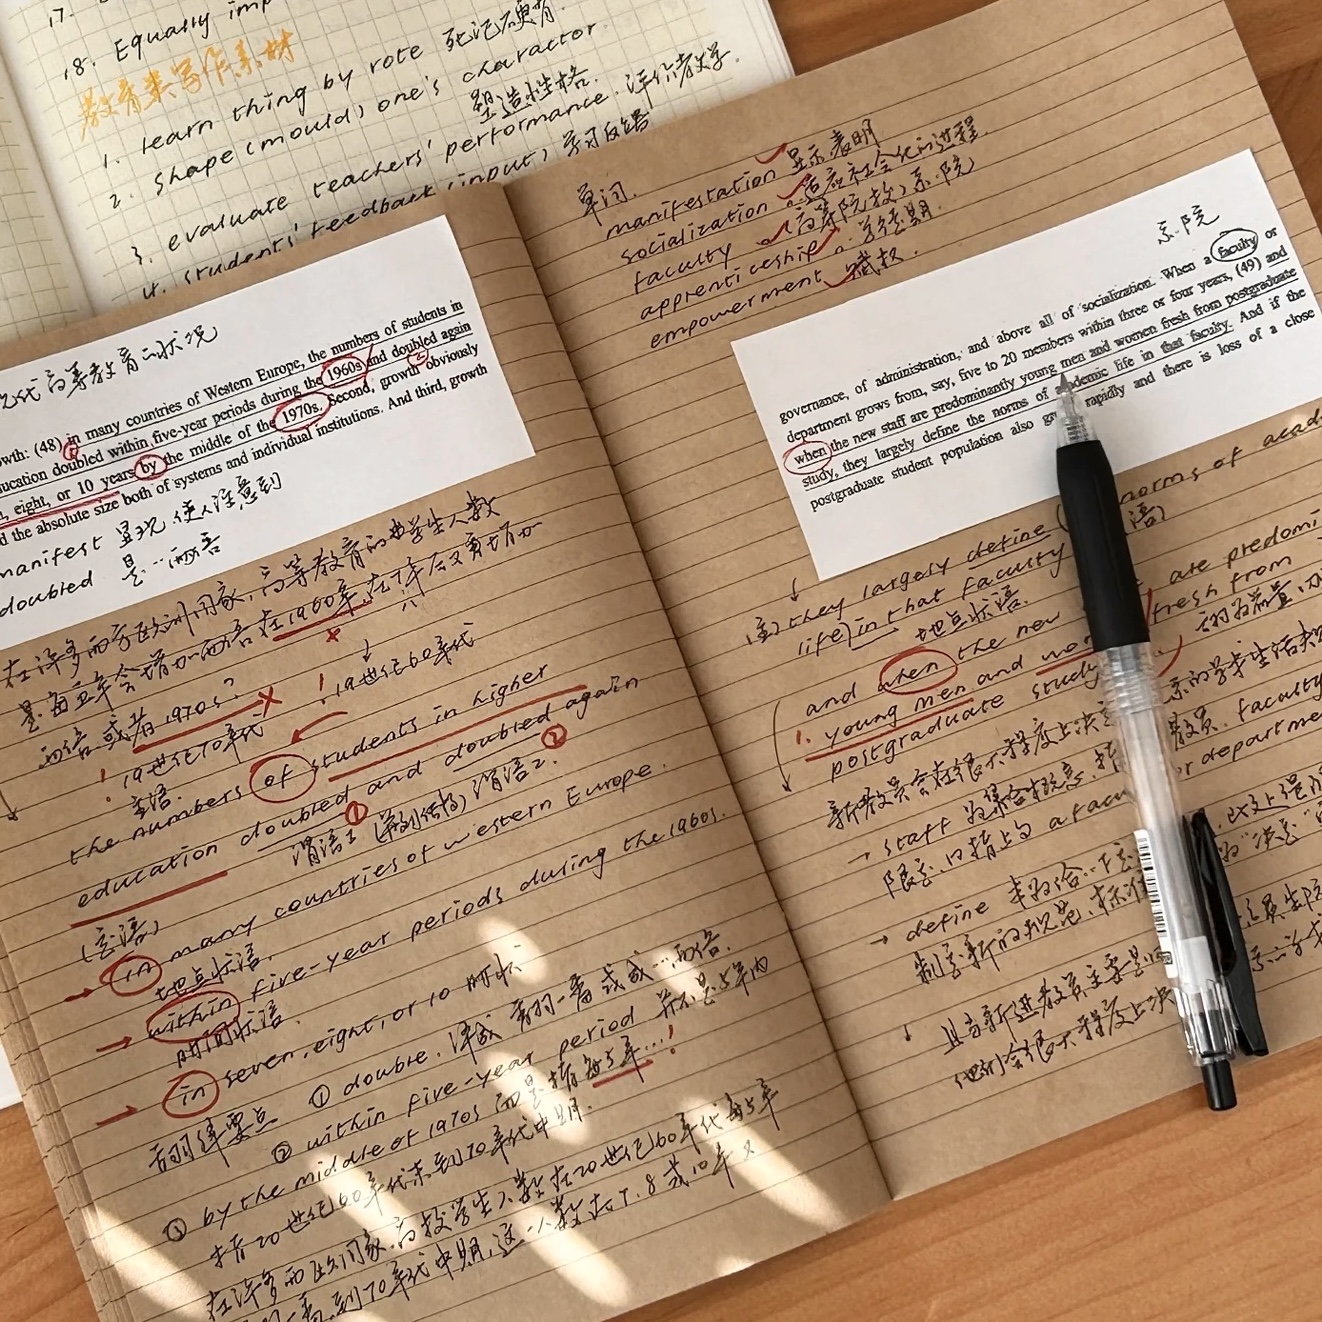 17.
18. Equally imp
教育类写作素材
1. learn thing by rote 死记硬背
2. shape (mould) one's character
塑造性格.
3. evaluate teachers' performance. 评价教学
4. students' feedback (input) 学习反馈
代高等教育的状况
owth: (48) in many countries of Western Europe, the numbers of students in
ucation doubled within five-year periods during the 1960s and doubled again
n, eight, or 10 years by the middle of the 1970s. Second, growth obviously
d the absolute size both of systems and individual institutions. And third, growth
manifest 显现 使人注意到
doubled 是…两倍
在许多西方欧洲国家,高等教育的学生人数
是每五年会增加两倍在1960年,在7年后又再增加
两倍 或者1970s? ! 19世纪60年代
! 19世纪70年代
主语.
the numbers of students in higher
education doubled and doubled again
谓语1 (并列结构) 谓语2.
(定语)
in many countries of western Europe.
地点状语.
within five-year periods during the 1960s.
时间状语.
in seven, eight, or 10 时状
翻译要点 ① double. 译成 翻一番 或 成…两倍.
② within five-year period 并不是5年内
而是指每5年…!
③ by the middle of 1970s
指20世纪60年代末到70年代中期.
在许多西欧国家,高校学生人数在20世纪60年代每5年
到70年代中期,这一人数在7.8或10年又
单词.
manifestation 显示表明
socialization n. 适应社会化的过程
faculty n. 高等院校,系.院
apprenticeship n. 学徒期.
empowerment 赋权.
系.院
governance, of administration, and above all of socialization. When a faculty or
department grows from, say, five to 20 members within three or four years, (49) and
when the new staff are predominantly young men and women fresh from postgraduate
study, they largely define the norms of academic life in that faculty. And if the
postgraduate student population also grows rapidly and there is loss of a close
(主) they largely define norms of acad
life) in that faculty 语)
地点状语.
and when the new are predomi
1. young men and wo fresh from
postgraduate study
新教员会在很大程度上决 系的学术生活
→ staff 为集合概念, 指 教员. faculty
限定,只指上句 a facu or department
→ define 本为给…下定 为"决定"
制定新的规范,标准
且当新进教员主要是
他们会很大程度上决